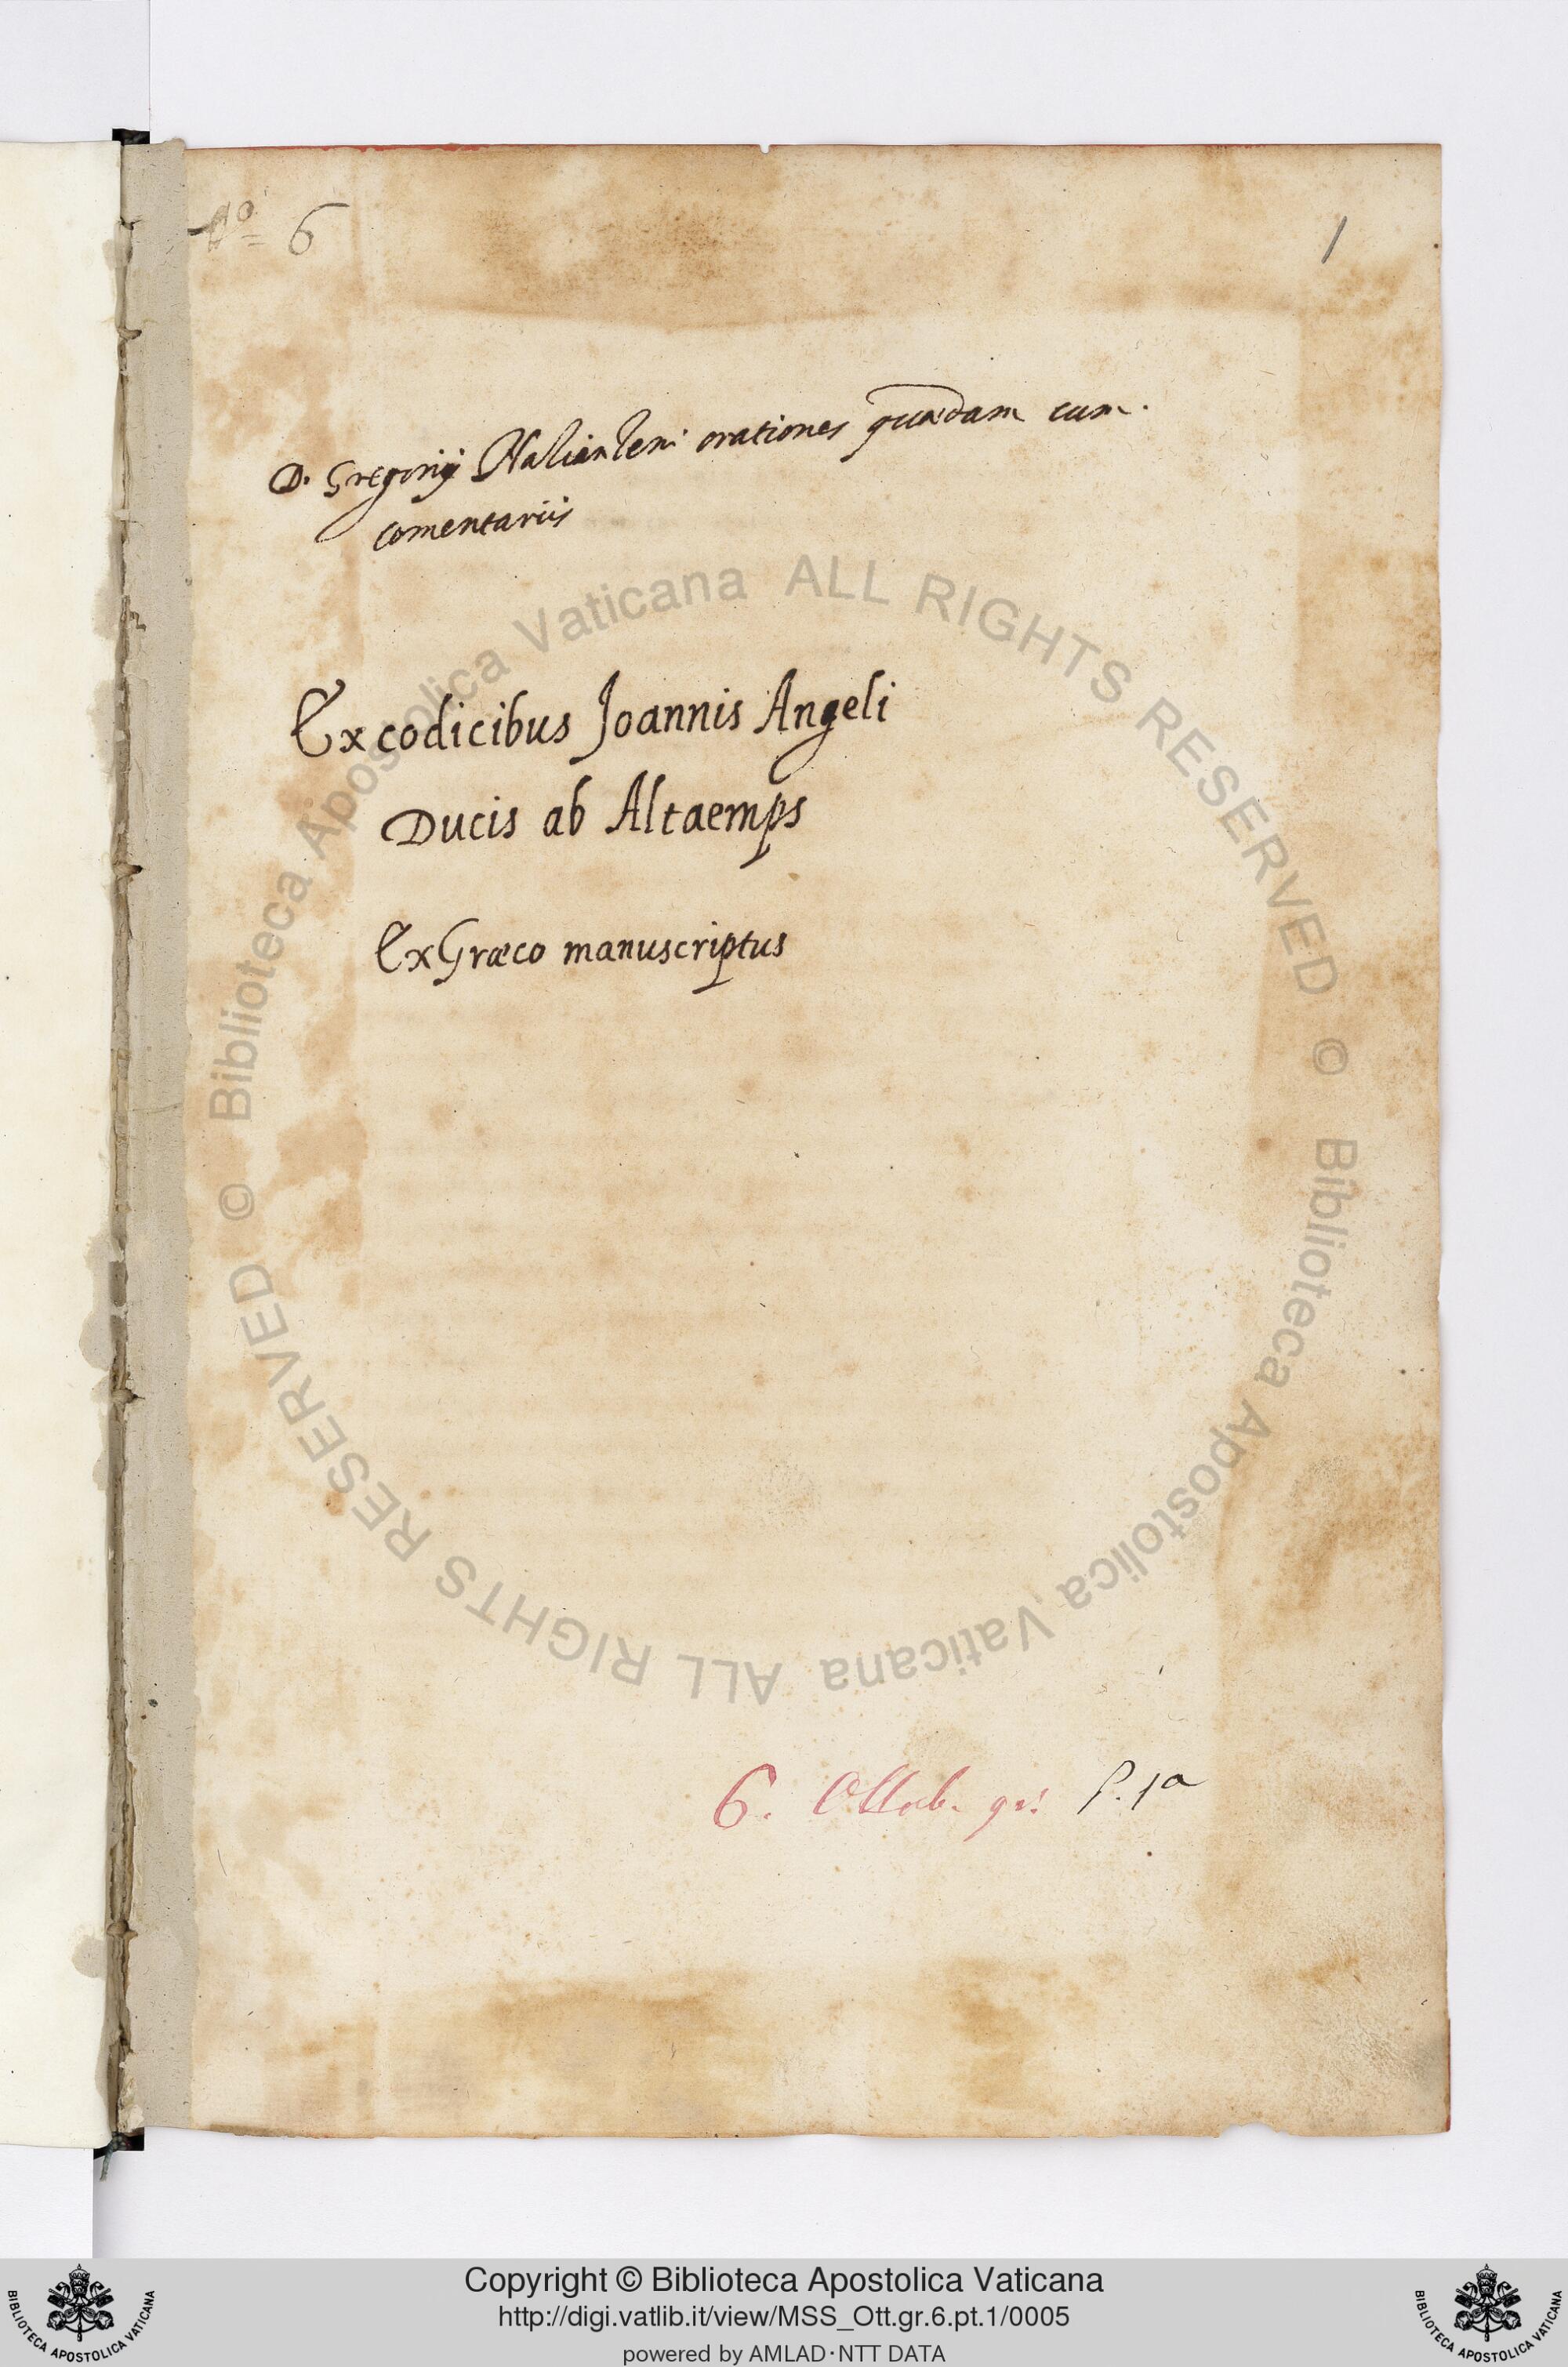 No 6
1
D. Gregorij Nazianzeni orationes quædam cum
comentariis
Ex codicibus Joannis Angeli
Ducis ab Altaemps
Ex Græco manuscriptus
6. Ottob. gr. P. 1a
© Biblioteca Apostolica Vaticana ALL RIGHTS RESERVED © Biblioteca Apostolica Vaticana ALL RIGHTS RESERVED
Copyright © Biblioteca Apostolica Vaticana
http://digi.vatlib.it/view/MSS_Ott.gr.6.pt.1/0005
powered by AMLAD·NTT DATA
BIBLIOTECA APOSTOLICA VATICANA
BIBLIOTECA APOSTOLICA VATICANA